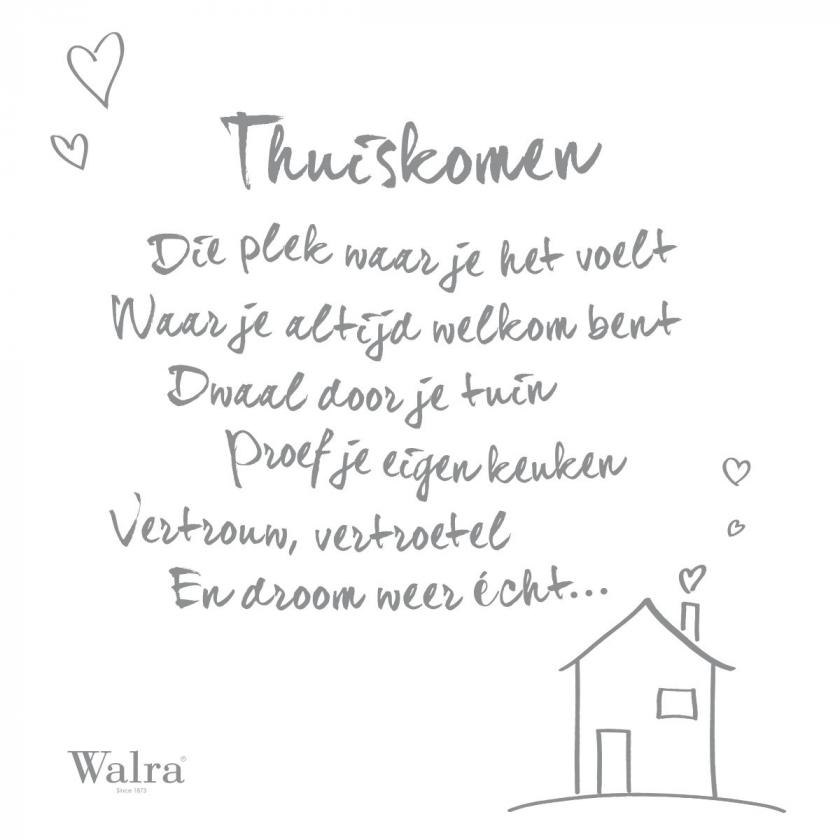 Thuiskomen
Die plek waar je het voelt
Waar je altijd welkom bent
Dwaal door je tuin
Proef je eigen keuken
Vertrouw, vertroetel
En droom weer écht...
Walra®
Since 1873